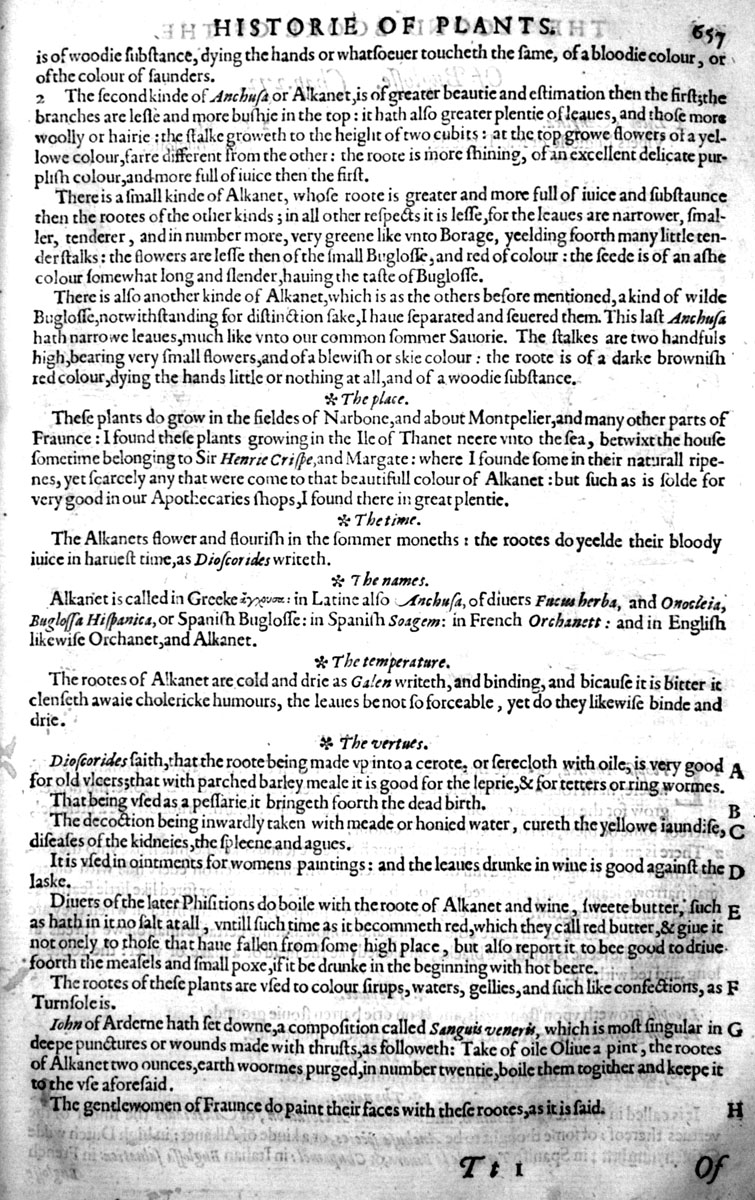 HISTORIE OF PLANTS. 657
is of woodie ſubſtance, dying the hands or whatſoeuer toucheth the ſame, of a bloodie colour, or
of the colour of ſaunders.
2 The ſecond kinde of Anchuſa or Alkanet, is of greater beautie and eſtimation then the firſt; the
branches are leſſe and more buſhie in the top: it hath alſo greater plentie of leaues, and thoſe more
woolly or hairie: the ſtalke groweth to the height of two cubits: at the top growe flowers of a yel-
lowe colour, farre different from the other: the roote is more ſhining, of an excellent delicate pur-
pliſh colour, and more full of iuice then the firſt.
There is a ſmall kinde of Alkanet, whoſe roote is greater and more full of iuice and ſubſtaunce
then the rootes of the other kinds; in all other reſpects it is leſſe, for the leaues are narrower, ſmal-
ler, tenderer, and in number more, very greene like vnto Borage, yeelding foorth many little ten-
der ſtalks: the flowers are leſſe then of the ſmall Bugloſſe, and red of colour: the ſeede is of an aſhe
colour ſomewhat long and ſlender, hauing the taſte of Bugloſſe.
There is alſo another kinde of Alkanet, which is as the others before mentioned, a kind of wilde
Bugloſſe, notwithſtanding for diſtinction ſake, I haue ſeparated and ſeuered them. This laſt Anchuſa
hath narrowe leaues, much like vnto our common ſommer Sauorie. The ſtalkes are two handfuls
high, bearing very ſmall flowers, and of a blewiſh or skie colour: the roote is of a darke browniſh
red colour, dying the hands little or nothing at all, and of a woodie ſubſtance.
❋ The place.
Theſe plants do grow in the fieldes of Narbone, and about Montpelier, and many other parts of
Fraunce: I found theſe plants growing in the Ile of Thanet neere vnto the ſea, betwixt the houſe
ſometime belonging to Sir Henrie Criſpe, and Margate: where I founde ſome in their naturall ripe-
nes, yet ſcarcely any that were come to that beautifull colour of Alkanet: but ſuch as is ſolde for
very good in our Apothecaries ſhops, I found there in great plentie.
❋ The time.
The Alkanets flower and flouriſh in the ſommer moneths: the rootes do yeelde their bloody
iuice in harueſt time, as Dioſcorides writeth.
❋ The names.
Alkanet is called in Greeke : in Latine alſo Anchuſa, of diuers Fucus herba, and Onocleia,
Bugloſſa Hiſpanica, or Spaniſh Bugloſſe: in Spaniſh Soagem: in French Orchanett: and in Engliſh
likewiſe Orchanet, and Alkanet.
❋ The temperature.
The rootes of Alkanet are cold and drie as Galen writeth, and binding, and bicauſe it is bitter it
clenſeth awaie cholericke humours, the leaues be not ſo forceable, yet do they likewiſe binde and
drie.
❋ The vertues.
Dioſcorides ſaith, that the roote being made vp into a cerote, or ſerecloth with oile, is very good A
for old vlcers; that with parched barley meale it is good for the leprie, & for tetters or ring wormes.
That being vſed as a peſſarie it bringeth foorth the dead birth. B
The decoction being inwardly taken with meade or honied water, cureth the yellowe iaundiſe, C
diſeaſes of the kidneies, the ſpleene and agues.
It is vſed in ointments for womens paintings: and the leaues drunke in wine is good againſt the D
laske.
Diuers of the later Phiſitions do boile with the roote of Alkanet and wine, ſweete butter, ſuch E
as hath in it no ſalt at all, vntill ſuch time as it becommeth red, which they call red butter, & giue it
not onely to thoſe that haue fallen from ſome high place, but alſo report it to bee good to driue
foorth the meaſels and ſmall poxe, if it be drunke in the beginning with hot beere.
The rootes of theſe plants are vſed to colour ſirups, waters, gellies, and ſuch like confections, as F
Turnſole is.
Iohn of Arderne hath ſet downe, a compoſition called Sanguis veneris, which is moſt ſingular in G
deepe punctures or wounds made with thruſts, as followeth: Take of oile Oliue a pint, the rootes
of Alkanet two ounces, earth woormes purged, in number twentie, boile them togither and keepe it
to the vſe aforeſaid.
The gentlewomen of Fraunce do paint their faces with theſe rootes, as it is ſaid. H
Tt 1 Of